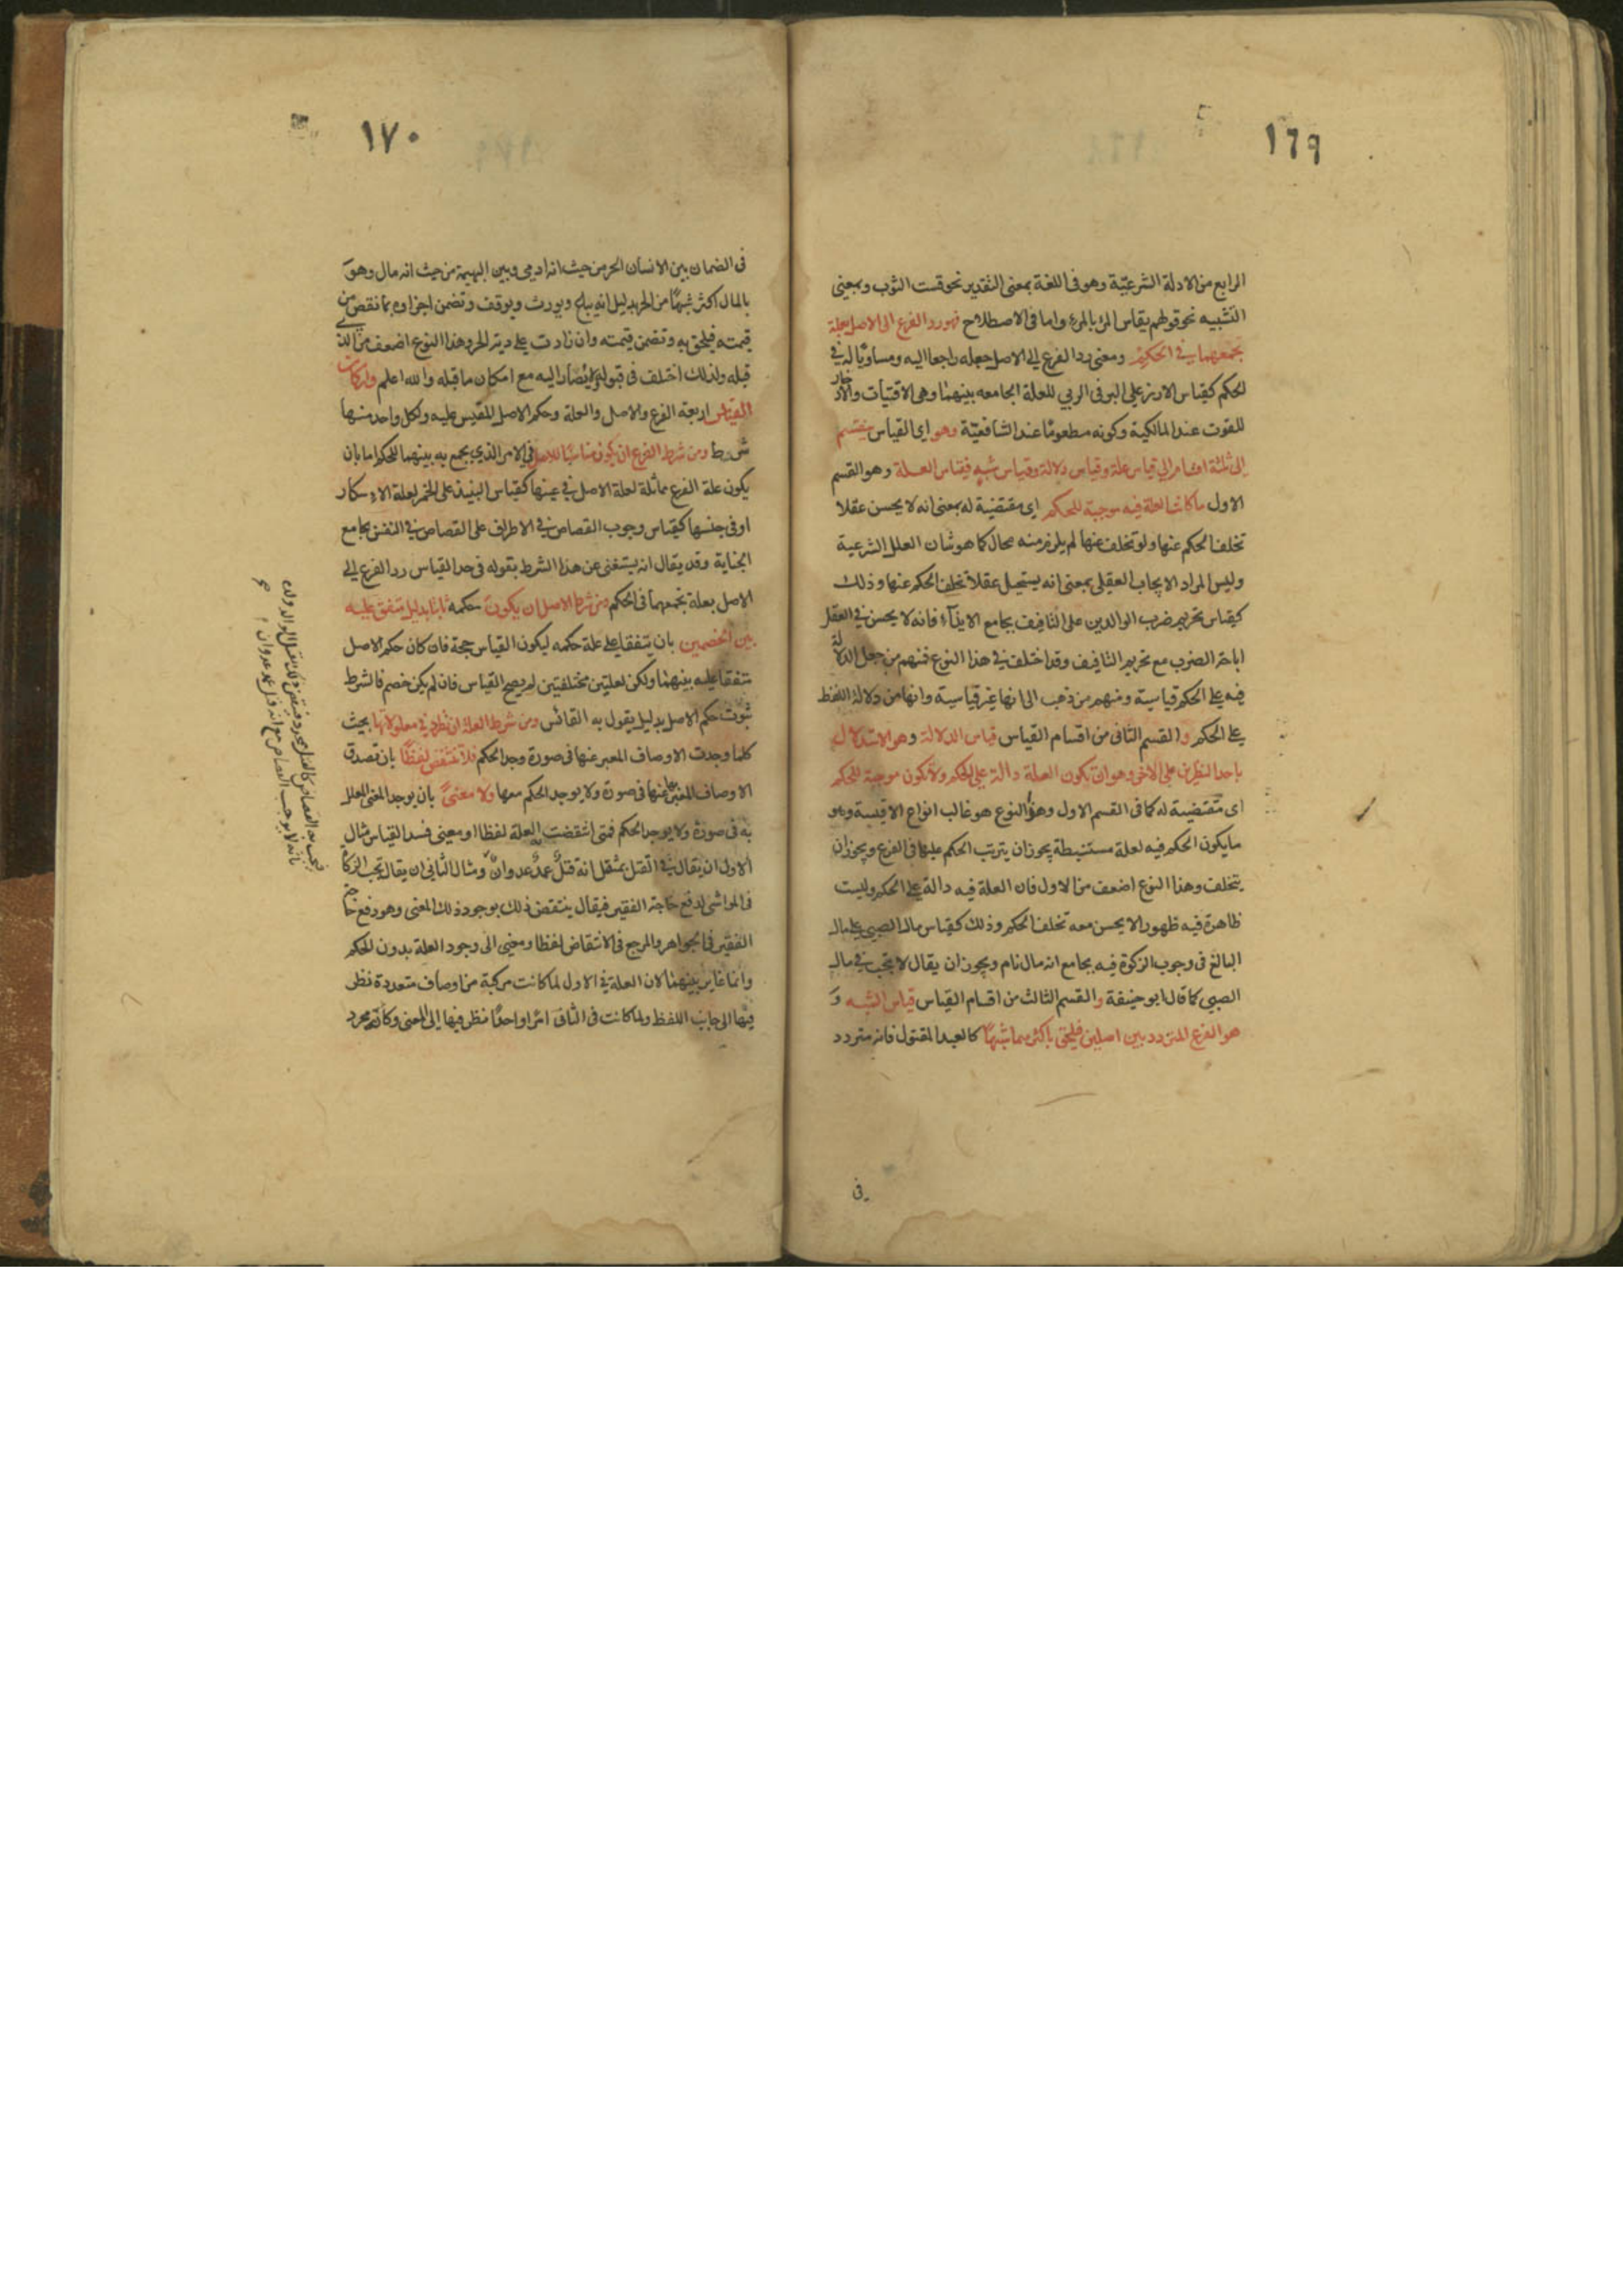 ١٦٩
الرابع من الادلة الشرعيّة وهو فى اللغة بمعنى التقدير نحو قست الثوب وبمعنى
التشبيه نحو قولهم يقاس المرء بالمرء واما فى الاصطلاح فهو رد الفرع الى الاصل بعلة
تجمعهما فى الحكم ومعنى رد الفرع الى الاصل جعله راجعا اليه ومساويًا له فى
الحكم كقياس الارز على البر فى الربي للعلة الجامعه بينهما وهى الاقتيات والادخار
للقوت عند المالكية وكونه مطعومًا عند الشافعيّة وهو اى القياس ينقسم
الى ثلثة اقسام الى قياس علة وقياس دلالة وقياس شبه فقياس العلة وهو القسم
الاول ما كانت العلة فيه موجبة للحكم اى مقتضية له بمعنى انه لا يحسن عقلا
تخلف الحكم عنها ولو تخلف عنها لم يلزم منه محال كما هو شان العلل الشرعية
وليس المراد الايجاب العقلى بمعنى انه يستحيل عقلا تخلف الحكم عنها وذلك
كقياس تحريم ضرب الوالدين على التافيف بجامع الايذآء فانه لا يحسن فى العقل
اباحة الضرب مع تحريم التافيف وقد اختلف فى هذا النوع فمنهم من جعل الدلالة
فيه على الحكم قياسية ومنهم من ذهب الى انها غير قياسية وانها من دلالة اللفظ
على الحكم والقسم الثانى من اقسام القياس قياس الدلالة وهو الاستدلال
باحد النظيرين على الاخر وهو ان تكون العلة دالة على الحكم ولا تكون موجبة للحكم
اى مقتضية له كما فى القسم الاول وهذا النوع هو غالب انواع الاقيسة وهو
ما يكون الحكم فيه لعلة مستنبطة يجوز ان يترتب الحكم عليها فى الفرع ويجوز ان
يتخلف وهذا النوع اضعف من الاول فان العلة فيه دالة على الحكم وليست
ظاهرة فيه ظهورا لا يحسن معه تخلف الحكم وذلك كقياس مال الصبى على مال
البالغ فى وجوب الزكوة فيه بجامع انه مال نام ويجوز ان يقال لا يجب فى مال
الصبى كما قال ابو حنيفة والقسم الثالث من اقسام القياس قياس الشبه و
هو الفرع المتردد بين اصلين فيلحق باكثرهما شبهًا كالعبد المقتول فانه متردد
فى
١٧٠
فى الضمان بين الانسان الحر من حيث انه ادمى وبين البهيمة من حيث انه مال وهو
بالمال اكثر شبهًا من الحر بدليل انه يباع ويورث ويوقف وتضمن اجزاوه بما نقص من
قيمته فيلحق به وتضمن قيمته وان زادت على دية الحر وهذا النوع اضعف من الذى
قبله ولذلك اختلف فى قبوله ولا يصار اليه مع امكان ما قبله والله اعلم واركان
القياس اربعة الفرع والاصل والعلة وحكم الاصل المقيس عليه ولكل واحد منها
شروط ومن شرط الفرع ان يكون مناسبًا للاصل فى الامر الذى يجمع به بينهما للحكم اما بان
يكون علة الفرع مماثلة لعلة الاصل فى عينها كقياس النبيذ على الخمر لعلة الاسكار
او فى جنسها كقياس وجوب القصاص فى الاطراف على القصاص فى النفس بجامع
الجناية وقد يقال انه يستغنى عن هذا الشرط بقوله فى حد القياس رد الفرع الى
الاصل بعلة تجمعهما فى الحكم ومن شرط الاصل ان يكون حكمه ثابتا بدليل متفق عليه
بين الخصمين بان يتفقا على علة حكمه ليكون القياس حجة فان كان حكم الاصل
متفقا عليه بينهما ولكن لعلتين مختلفتين لم يصح القياس فان لم يكن خصم فالشرط
ثبوت حكم الاصل بدليل يقول به القائس ومن شرط العلة ان تطرد فى معلولاتها بحيث
كلما وجدت الاوصاف المعبر عنها فى صورة وجد الحكم فلا تنتقض لفظًا بان تصدق
الاوصاف المعبر بها عنها فى صورة ولا يوجد الحكم معها ولا معنىً بان يوجد المعنى المعلل
به فى صورة ولا يوجد الحكم فمتى انتقضت العلة لفظا او معنى فسد القياس مثال
الاول ان يقال فى القتل بمثقل انه قتل عمد عدوان ومثال الثانى ان يقال تجب الزكاة
فى المواشى لدفع حاجة الفقير فيقال ينتقض ذلك بوجود ذلك المعنى وهو دفع حاجة
الفقير فى الجواهر والمرجع فى الانتقاض لفظا ومعنى الى وجود العلة بدون الحكم
وانما غاير بينهما لان العلة فى الاول لما كانت مركبة من اوصاف متعددة نظر
فيها الى جانب اللفظ ولما كانت فى الثانى امرا واحدًا نظر فيها الى المعنى وكانه مجرد
فيجب به القصاص كالقتل بمحدد فينتقض ذلك بقتل الوالد ولده
فانه لا يوجب القصاص مع انه قتل عمد عدوان